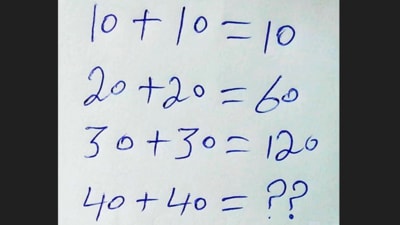 10 + 10 = 10
20 + 20 = 60
30 + 30 = 120
40 + 40 = ??